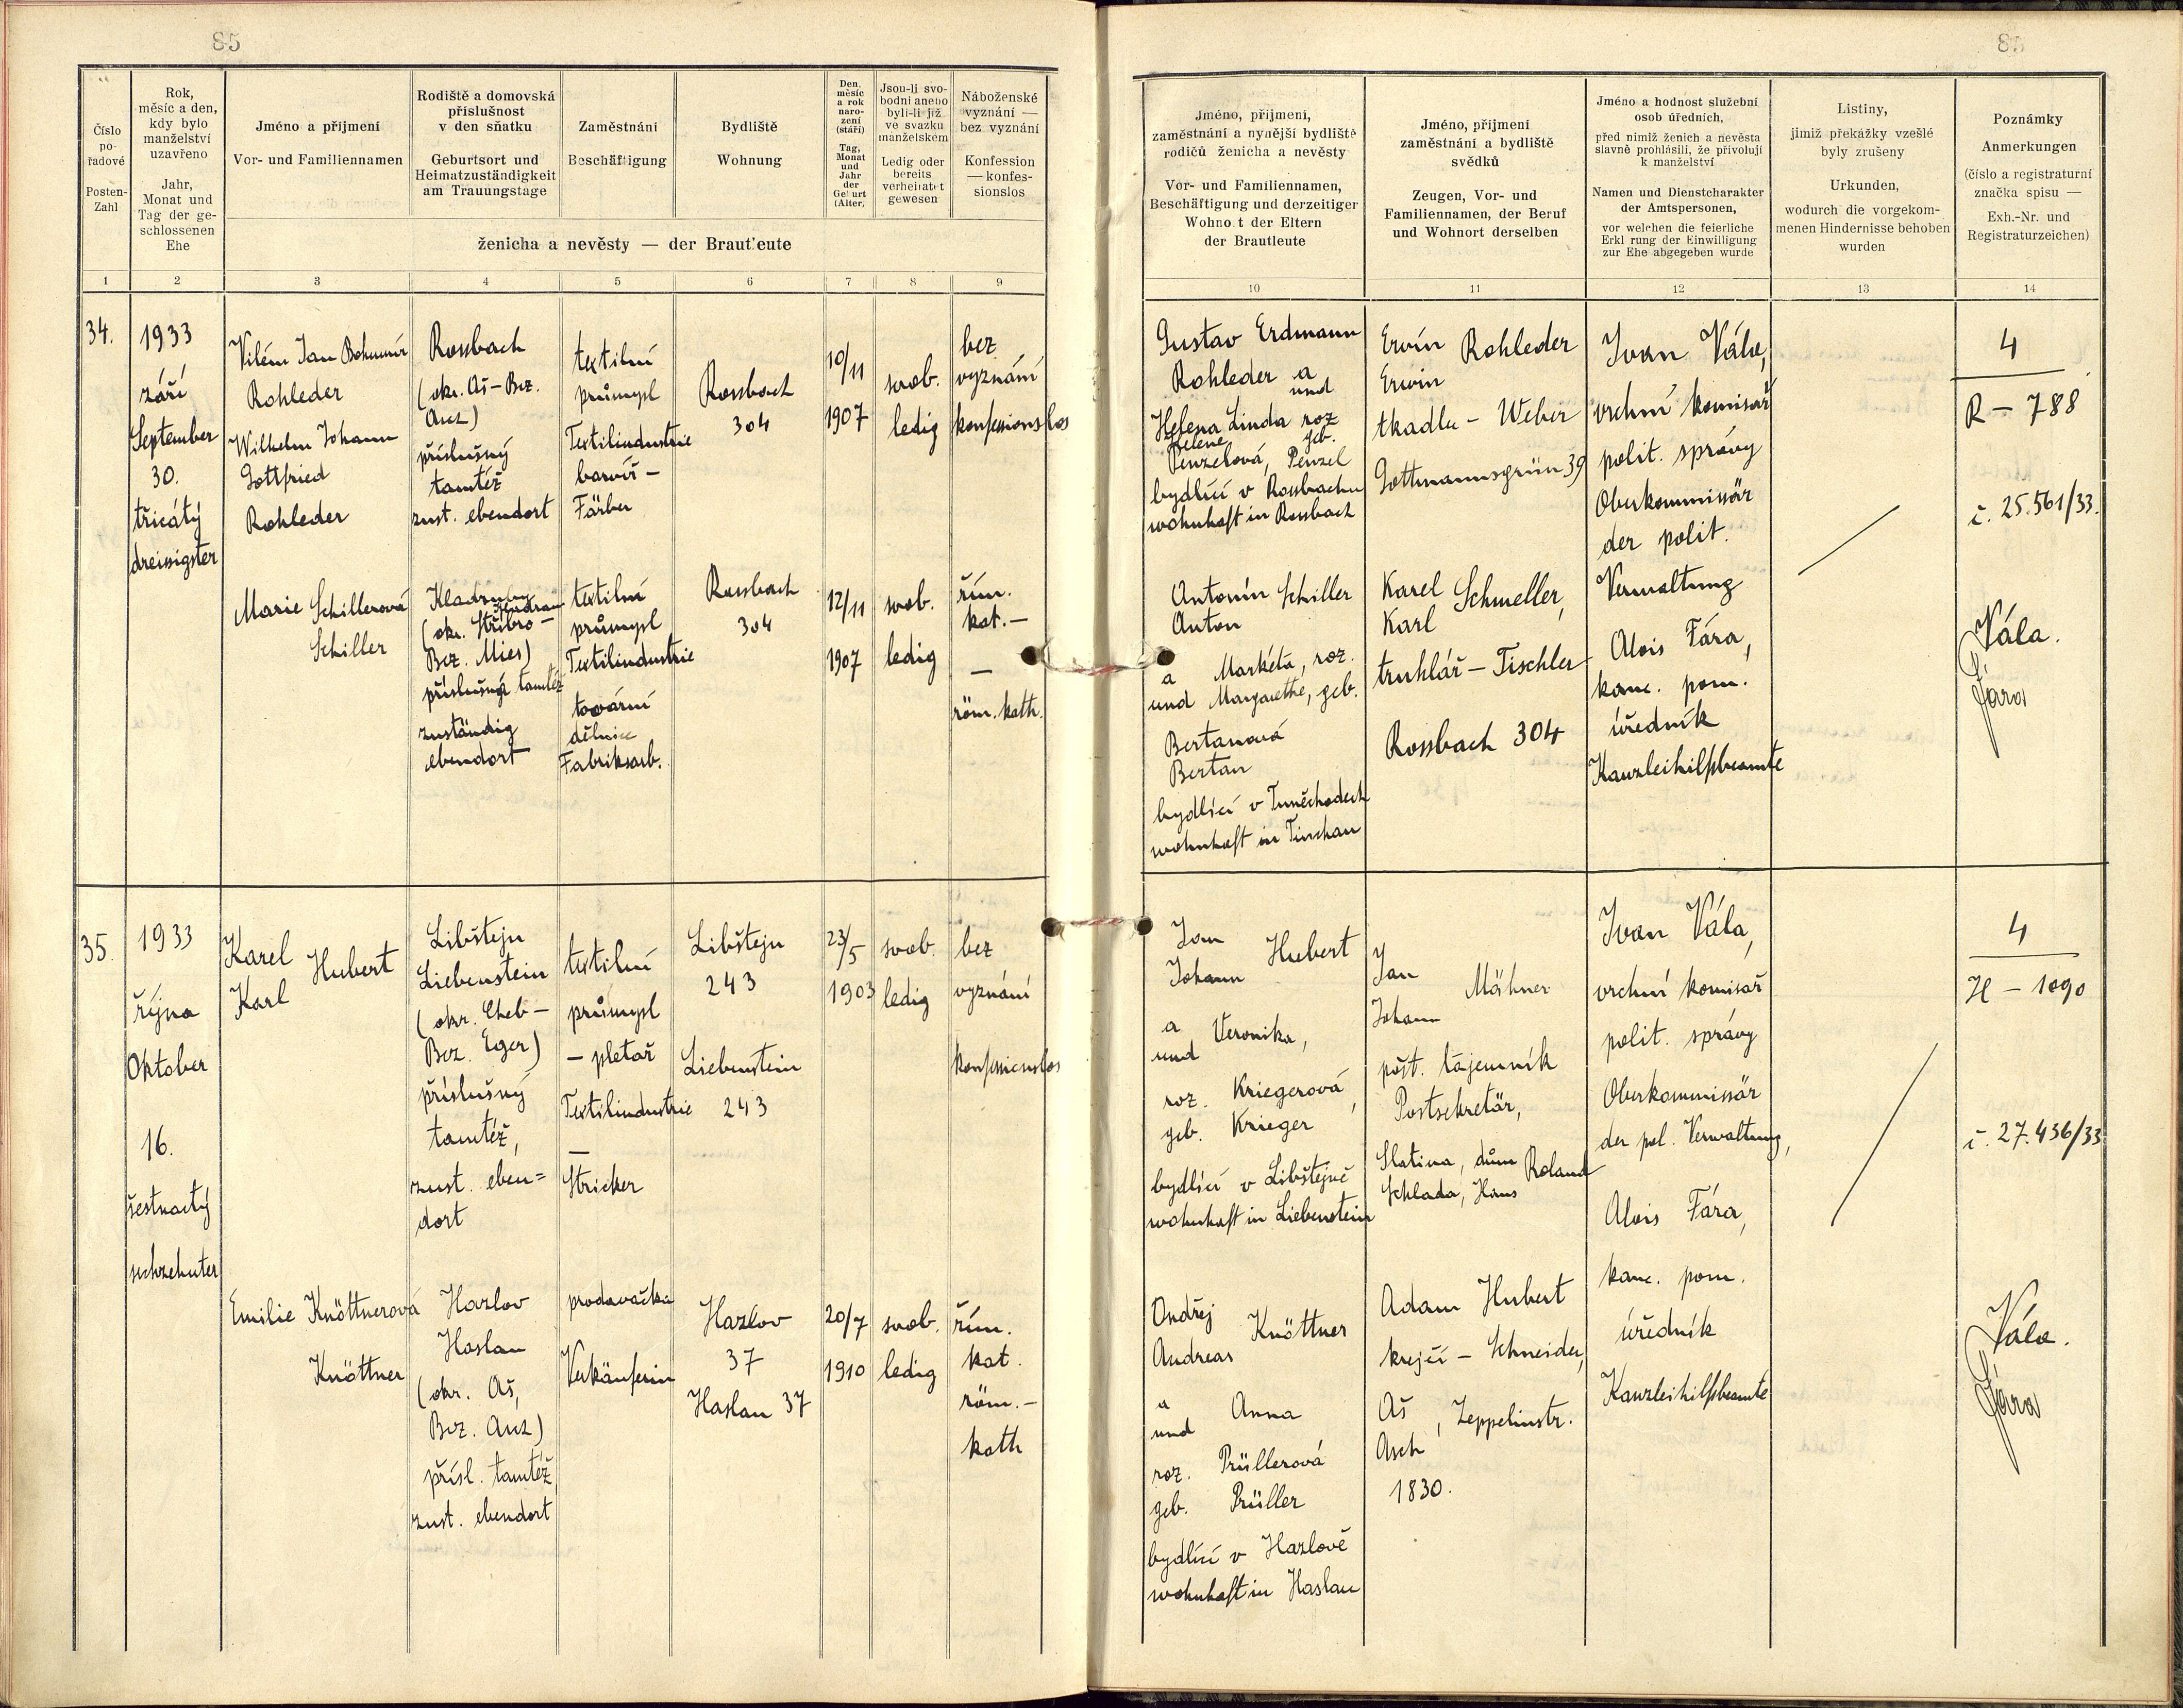 85
Číslo
po-
řadové
Posten-
Zahl
Rok,
měsíc a den,
kdy bylo
manželství
uzavřeno
Jahr,
Monat und
Tag der ge-
schlossenen
Ehe
Jméno a příjmení
Vor- und Familiennamen
Rodiště a domovská
příslušnost
v den sňatku
Geburtsort und
Heimatzuständigkeit
am Trauungstage
Zaměstnání
Beschäftigung
Bydliště
Wohnung
Den,
měsíc
a rok
naro-
zení
(stáří)
Tag,
Monat
und
Jahr
der
Geburt
(Alter)
Jsou-li svo-
bodni anebo
byli-li již
ve svazku
manželském
Ledig oder
bereits
verheiratet
gewesen
Náboženské
vyznání —
bez vyznání
Konfession
— konfes-
sionslos
ženicha a nevěsty — der Braut'eute
1 2 3 4 5 6 7 8 9
34.
1933
září
September
30.
třicátý
dreissigster
Vilém Jan Bohumír
Rohleder
Wilhelm Johann
Gottfried
Rohleder
Rossbach
(okr. Aš - Bez.
Asch)
příslušný
tamtéž
zust. ebendort
textilní
průmysl
Textilindustrie
barvíř -
Färber
Rossbach
304
10/11
1907
svob.
ledig
bez
vyznání
konfessionslos
Marie Schillerová
Schiller
Kladruby
Kladrau
(okr. Stříbro -
Bez. Mies)
příslušná tamtéž
zuständig
ebendort
textilní
průmysl
Textilindustrie
tovární
dělnice
Fabriksarb.
Rossbach
304
12/11
1907
svob.
ledig
řím.
kat. -
—
röm. kath.
35.
1933
října
Oktober
16.
šestnactý
sechzehnter
Karel Hubert
Karl
Libštejn
Liebenstein
(okr. Cheb -
Bez. Eger)
příslušný
tamtéž,
zust. eben=
dort
textilní
průmysl
- pletař
Textilindustrie
—
Stricker
Libštejn
243
Liebenstein
243
23/5
1903
svob.
ledig
bez
vyznání
konfessionslos
Emilie Knöttnerová
Knöttner
Hazlov
Haslau
(okr. Aš,
Bez. Asch)
přísl. tamtéž
zust. ebendort
prodavačka
Verkäuferin
Hazlov
37
Haslau 37
20/7
1910
svob.
ledig
řím.
kat.
röm. -
kath
85
Jméno, příjmení,
zaměstnání a nynější bydliště
rodičů ženicha a nevěsty
Vor- und Familiennamen,
Beschäftigung und derzeitiger
Wohno t der Eltern
der Brautleute
Jméno, příjmení
zaměstnání a bydliště
svědků
Zeugen, Vor- und
Familiennamen, der Beruf
und Wohnort derselben
Jméno a hodnost služební
osob úředních,
před nimiž ženich a nevěsta
slavně prohlásili, že přivolují
k manželství
Namen und Dienstcharakter
der Amtspersonen,
vor welchen die feierliche
Erkl rung der Einwilligung
zur Ehe abgegeben wurde
Listiny,
jimiž překážky vzešlé
byly zrušeny
Urkunden,
wodurch die vorgekom-
menen Hindernisse behoben
wurden
Poznámky
Anmerkungen
(číslo a registraturní
značka spisu —
Exh.-Nr. und
Registraturzeichen)
10 11 12 13 14
Gustav Erdmann
Rohleder a
und
Helena Linda roz
Helene geb.
Penzelová, Penzel
bydlící v Rossbachu
wohnhaft in Rossbach
Ervín Rohleder
Erwin
tkadlec - Weber
Gottmannsgrün 39
Ivan Vála,
vrchní komisař
polit. správy
Oberkommissär
der polit.
Verwaltung
Alois Fára,
kanc. pom.
úředník
Kanzleihilfsbeamte
4
R - 788
č. 25.561/33.
Antonín Schiller
Anton
a Markéta, roz.
und Margarethe, geb.
Bertanová
Bertan
bydlící v Tuněchodech
wohnhaft in Tinchau
Karel Schmeller,
Karl
truhlář - Tischler
Rossbach 304
Vála.
Fára
Jan Hubert
Johann
a Veronika,
und
roz. Kriegerová,
geb. Krieger
bydlící v Libštejně
wohnhaft in Liebenstein
Jan Mähner
Johann
pošt. tajemník
Postsekretär,
Slatina, dům Roland
Schlada, Haus
Ivan Vála,
vrchní komisař
polit. správy
Oberkommissär
der pol. Verwaltung,
Alois Fára,
kanc. pom.
úředník
Kanzleihilfsbeamte
4
H - 1090
č. 27.436/33
Ondřej Knöttner
Andreas
a Anna
und
roz. Prüllerová
geb. Prüller
bydlící v Hazlově
wohnhaft in Haslau
Adam Hubert
krejčí - Schneider,
Aš, Zeppelinstr.
Asch
1830.
Vála.
Fára